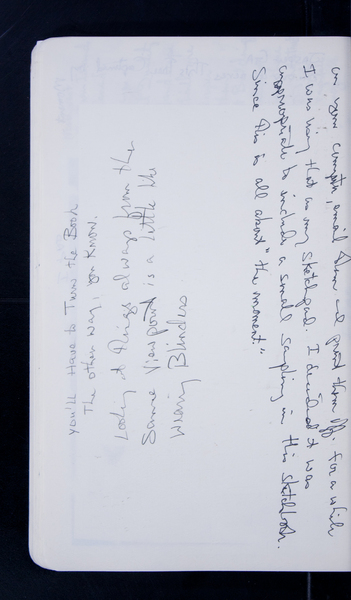 on your computer, email them and print them off. For a while
I was using that as my sketchpad. I decided it was
appropriate to include a small sampling in this sketchbook.
Since this is all about "the moment."
you'll Have to Turn the Book
The other way, you know.
Looking at things always from the
Same Viewpoint is a little like
Wearing Blinders.